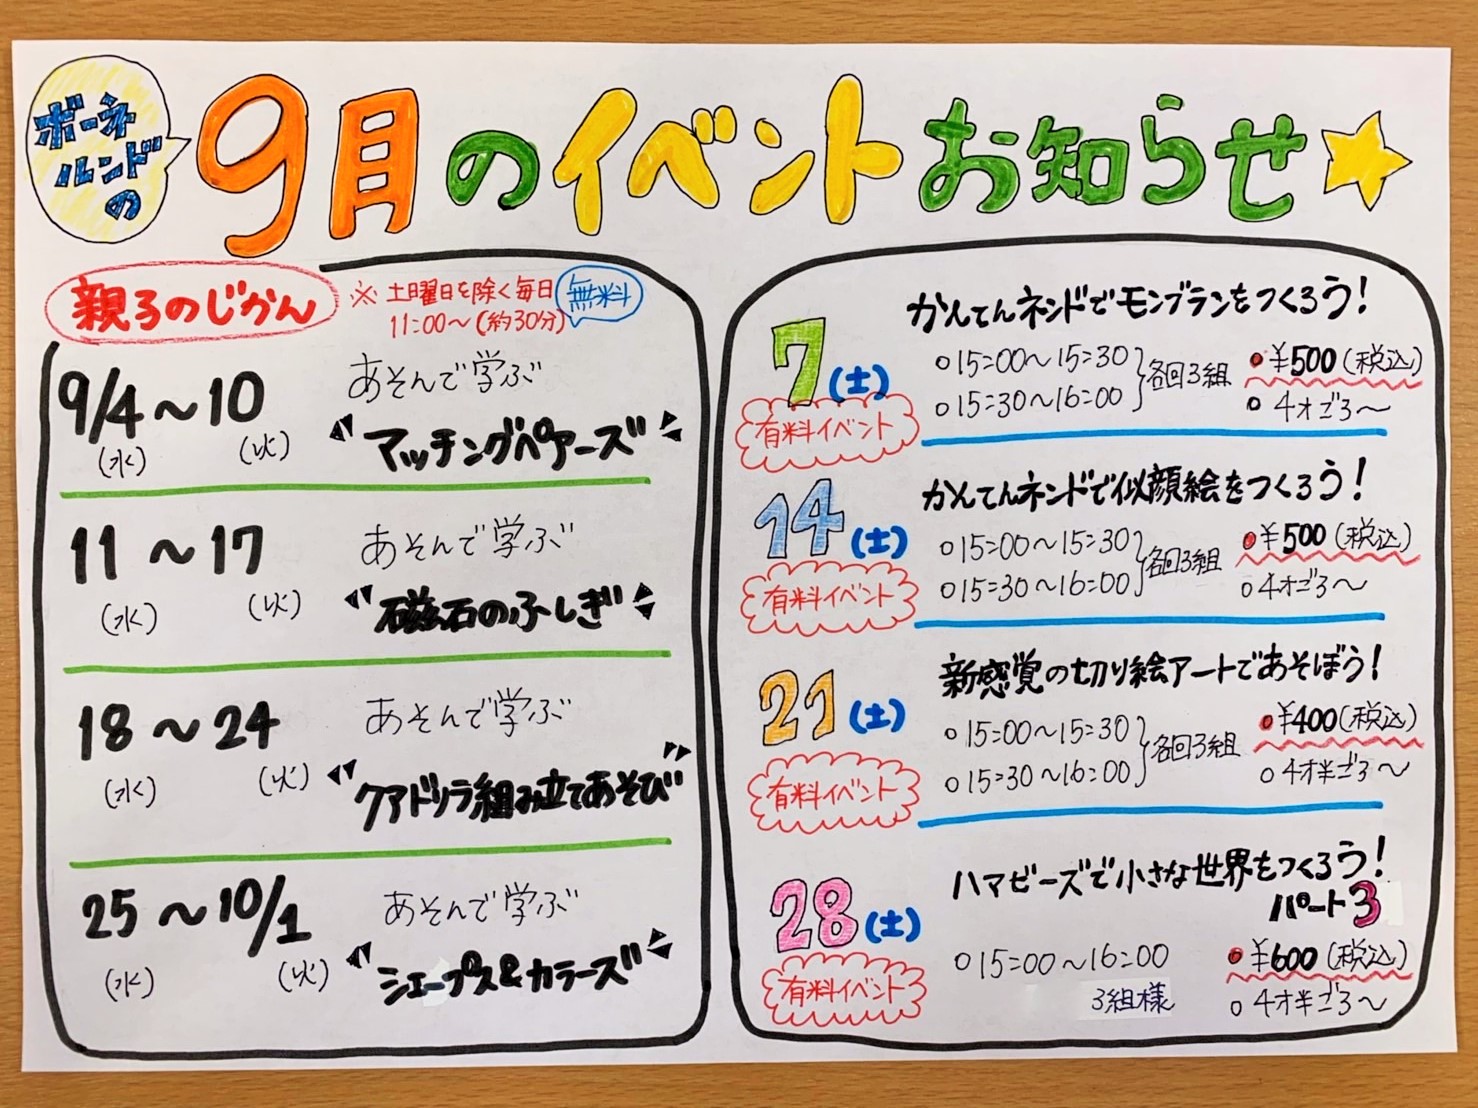 ボーネ
ルンドの
9月のイベントお知らせ
親子のじかん
※土曜日を除く毎日
11:00〜(約30分)
無料
9/4〜10
(水)
(火)
あそんで学ぶ
"マッチングペアーズ"
11〜17
(水)
(火)
あそんで学ぶ
"磁石のふしぎ"
18〜24
(水)
(火)
あそんで学ぶ
"クアドリラ組み立てあそび"
25〜10/1
(水)
(火)
あそんで学ぶ
"シェープス&カラーズ"
7(土)
有料イベント
かんてんネンドでモンブランをつくろう!
○15:00〜15:30
○15:30〜16:00
各回3組
●¥500(税込)
○4才ごろ〜
14(土)
有料イベント
かんてんネンドで似顔絵をつくろう!
○15:00〜15:30
○15:30〜16:00
各回3組
●¥500(税込)
○4才ごろ〜
21(土)
有料イベント
新感覚の切り絵アートであそぼう!
○15:00〜15:30
○15:30〜16:00
各回3組
●¥400(税込)
○4才半ごろ〜
28(土)
有料イベント
ハマビーズで小さな世界をつくろう!
パート3
○15:00〜16:00
3組様
●¥600(税込)
○4才半ごろ〜